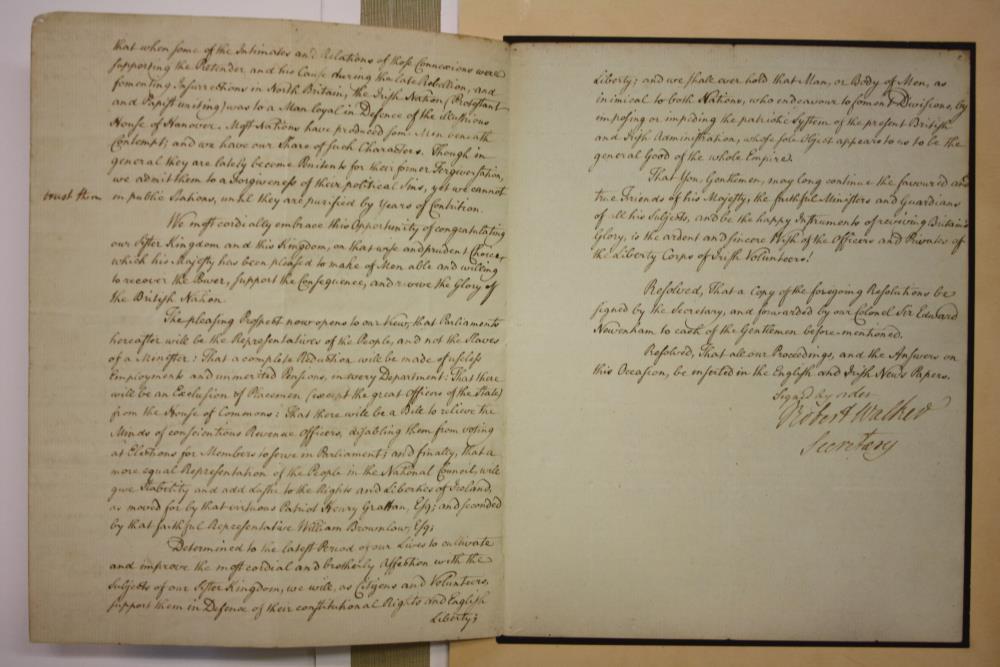 that when some of the Intimates and Relations of those Connexions were
supporting the Pretender and his Cause during the late Rebellion, and
fomenting Insurrections in North Britain, the Irish Nation (Protestant
and Papist uniting) was to a Man loyal in Defence of the illustrious
House of Hanover. Most Nations have produced some Men beneath
Contempt; and we have our Share of such Characters. Though in
general they are lately become Penitents for their former Tergiversation,
we admit them to a Forgiveness of their political Sins, yet we cannot
trust them in public Stations, until they are purified by Years of Contrition.
We most cordially embrace this Opportunity of congratulating
our Sister Kingdom and this Kingdom, on that wise and prudent Choice,
which his Majesty has been pleased to make of Men able and willing
to recover the Power, support the Consequence, and revive the Glory of
the British Nation.
The pleasing Prospect now opens to our View, that Parliaments
hereafter will be the Representatives of the People, and not the Slaves
of a Minister: That a complete Reduction will be made of useless
Employments and unmerited Pensions, in every Department: That there
will be an Exclusion of Placemen (except the great Officers of the State)
from the House of Commons: That there will be a Bill to relieve the
Minds of conscientious Revenue Officers, disabling them from voting
at Elections for Members to serve in Parliament; and finally, that a
more equal Representation of the People in the National Council, will
give Stability and add Lustre to the Rights and Liberties of Ireland,
as moved for by that virtuous Patriot Henry Grattan, Esq; and seconded
by that faithful Representative William Brownlow, Esq;
Determined to the latest Period of our Lives to cultivate
and improve the most cordial and brotherly Affection with the
Subjects of our Sister Kingdom, we will, as Citizens and Volunteers,
support them in Defence of their constitutional Rights and English
Liberty;
Liberty; and we shall ever hold that Man, or Body of Men, as
inimical to both Nations, who endeavour to foment Divisions, by
imposing or impiding the patriotic System of the present British
and Irish Administration, whose sole Object appears to us to be the
general Good of the whole Empire.
That You, Gentlemen, may long continue the favoured and
true Friends of his Majesty, the faithful Ministers and Guardians
of all his Subjects, and be the happy Instruments of reviving Britain's
Glory, is the ardent and sincere Wish of the Officers and Privates of
the Liberty Corps of Irish Volunteers!
Resolved, That a Copy of the foregoing Resolutions be
signed by the Secretary, and forwarded by our Colonel Sir Edward
Newenham to each of the Gentlemen before-mentioned.
Resolved, That all our Proceedings, and the Answers on
this Occasion, be inserted in the English and Irish News Papers.
Signed by order
Robert Walker
Secretary